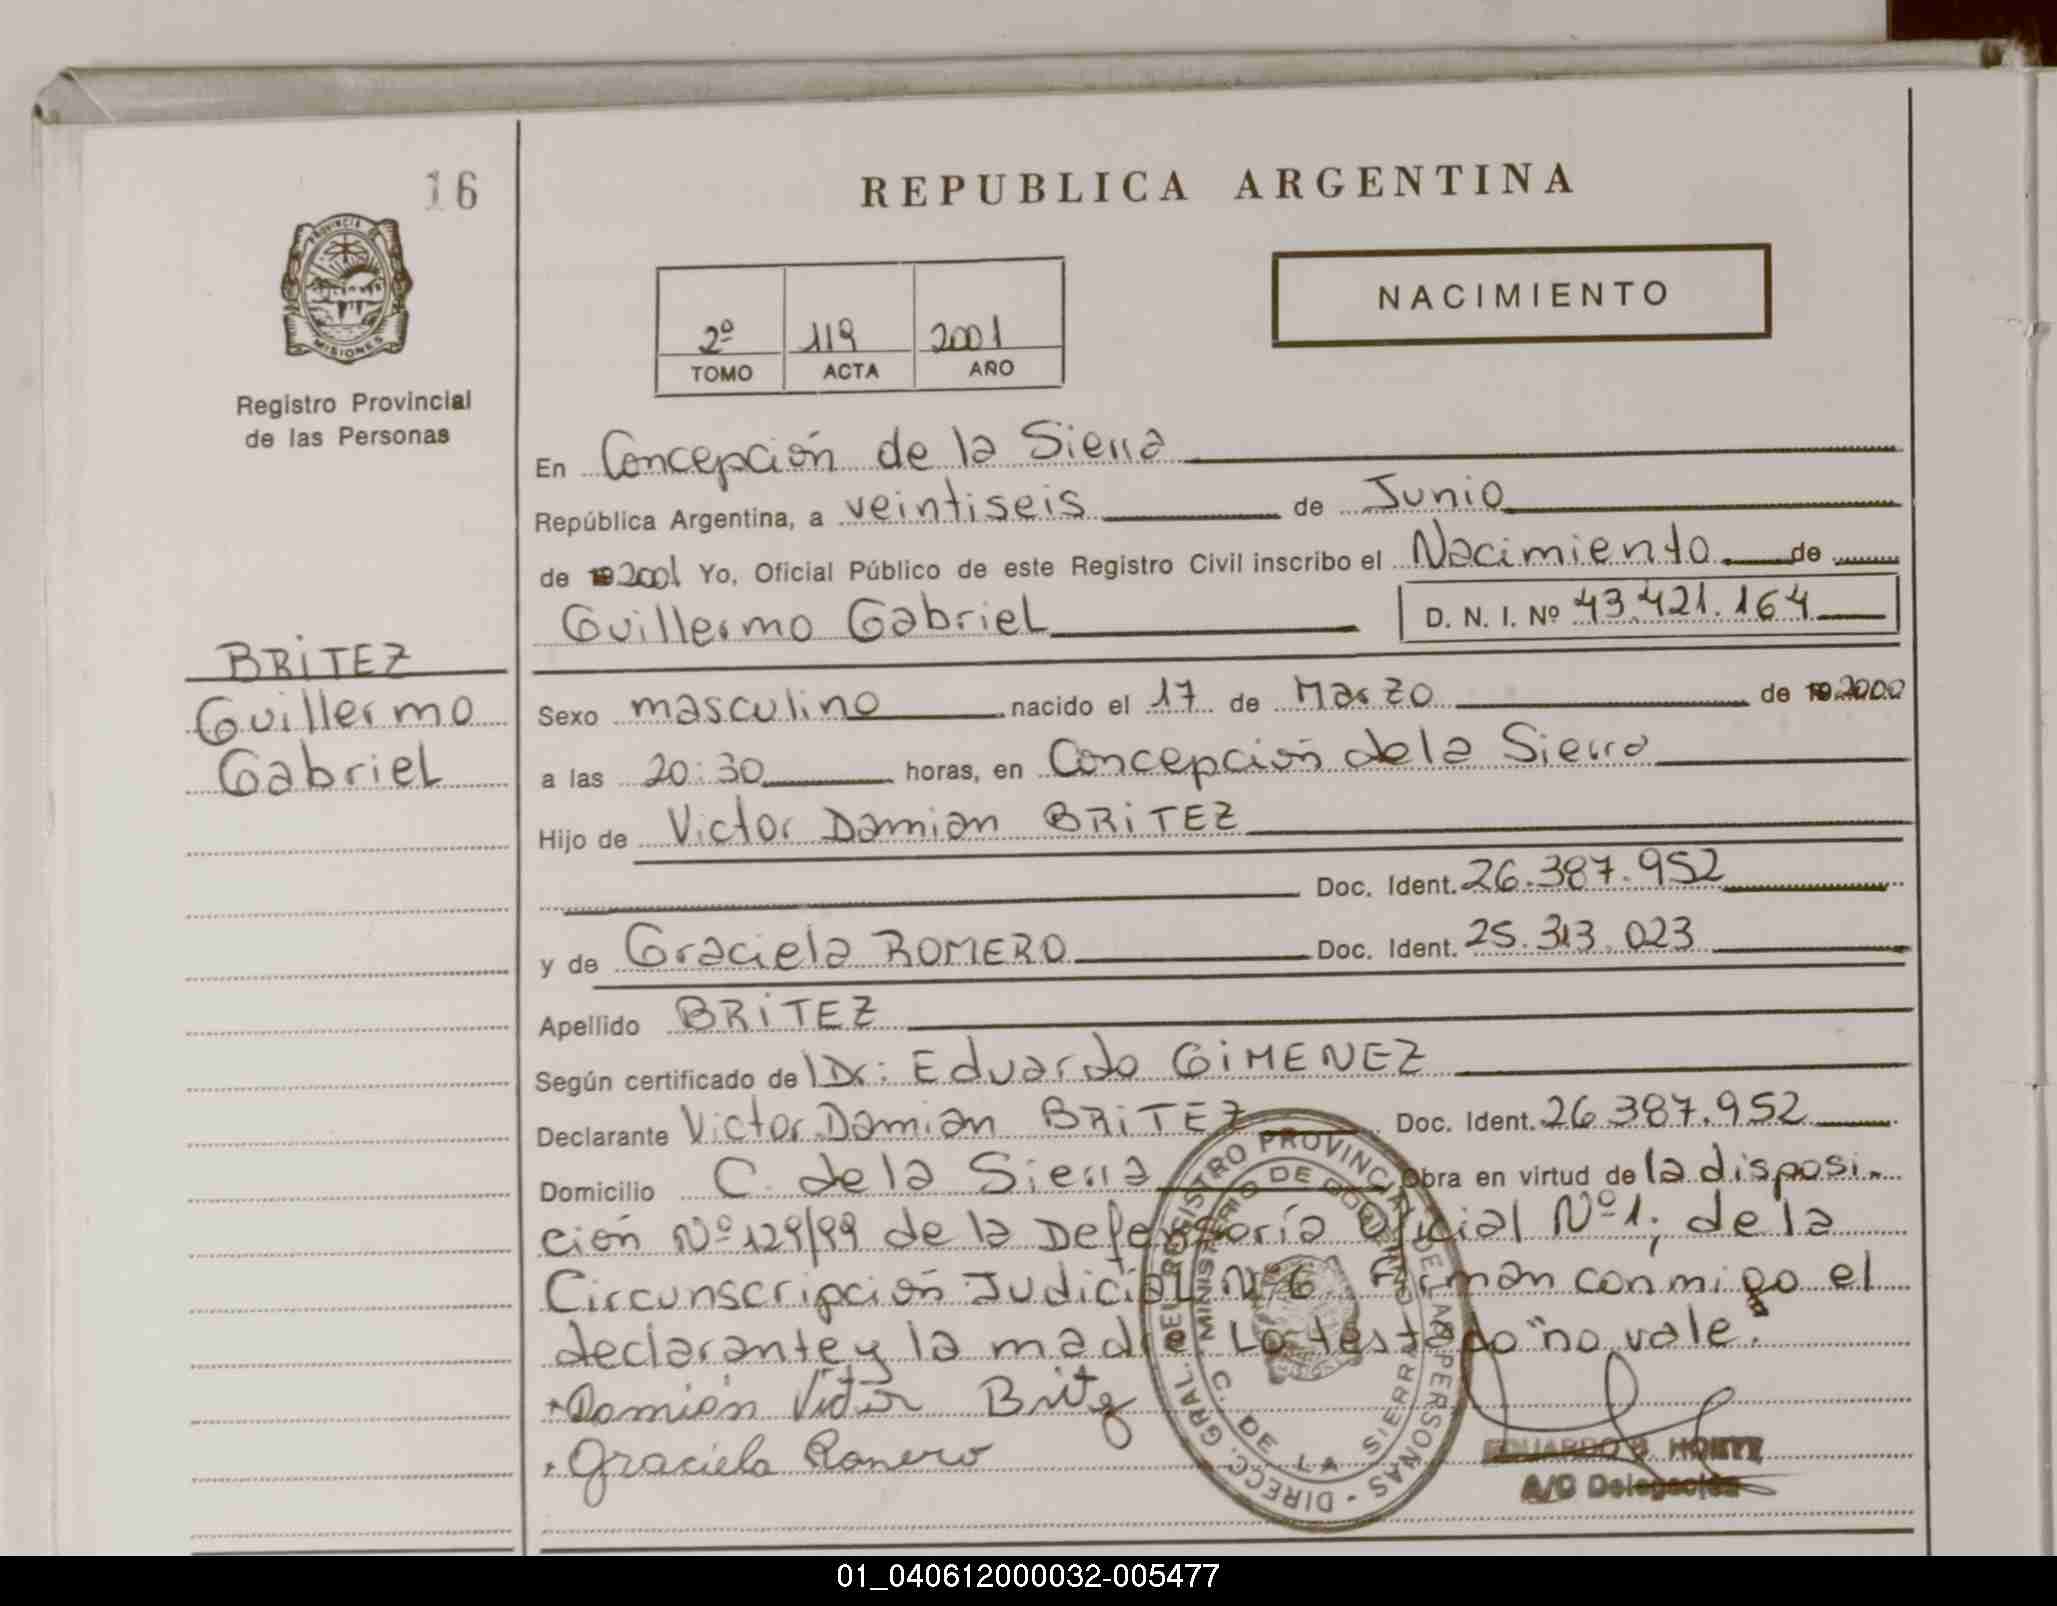 16
REPUBLICA ARGENTINA
PROVINCIA DE
MISIONES
NACIMIENTO
2º 119 2001
TOMO ACTA AÑO
Registro Provincial
de las Personas
En Concepción de la Sierra
República Argentina, a veintiseis de Junio
de 2001 Yo, Oficial Público de este Registro Civil inscribo el Nacimiento de
Guillermo Gabriel D. N. I. Nº 43.421.164
BRiTEZ
Guillermo
Gabriel
Sexo masculino nacido el 17 de Marzo de 2000
a las 20:30 horas, en Concepción de la Sierra
Hijo de Victor Damian BRiTEZ
Doc. Ident. 26.387.952
y de Graciela ROMERO Doc. Ident. 25.313.023
Apellido BRiTEZ
Según certificado de Dr: Eduardo GiMENEZ
Declarante Victor Damian BRiTEZ Doc. Ident. 26.387.952
Domicilio C. de la Sierra Obra en virtud de la disposi-
ción Nº 129/99 de la Defensoría Oficial Nº 1; de la
Circunscripción Judicial Nº 6. Firman conmigo el
declarante y la madre. Lo testado "no vale."
Damián Victor Britez
Graciela Romero
DIRECC. GRAL. DEL REGISTRO PROVINCIAL DE LAS PERSONAS
MINISTERIO DE GOBIERNO
C. DE LA SIERRA
EDUARDO
A/C Delegación
01_040612000032-005477